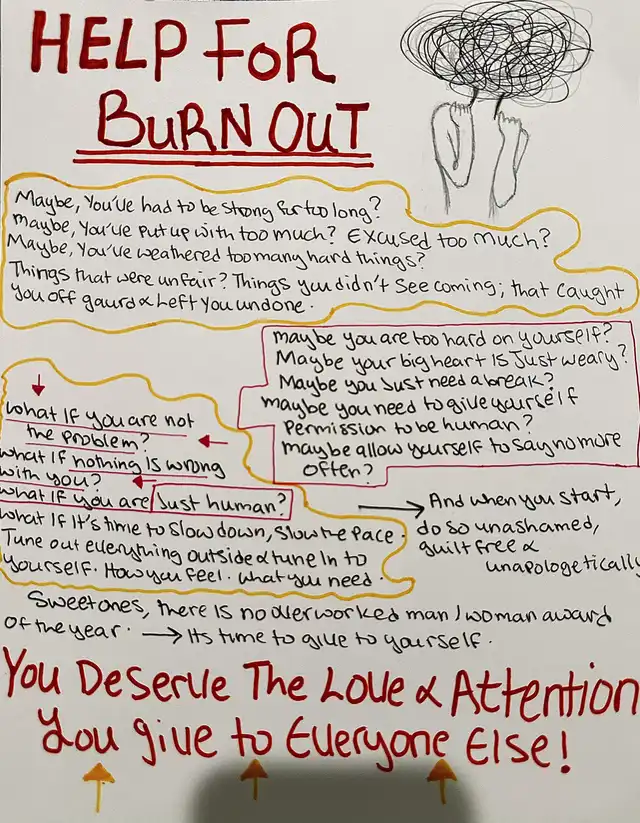 HELP FOR
BURN OUT
Maybe, You've had to be strong for too long?
maybe, You've put up with too much? Excused too much?
Maybe, You've weathered too many hard things?
Things that were unfair? Things you didn't see coming; that caught
you off gaurd & Left You undone.
maybe you are too hard on yourself?
Maybe your big heart is Just weary?
Maybe you Just need a break?
maybe you need to give yourself
permission to be human?
maybe allow yourself to say no more
often?
what IF you are not
the problem?
what IF nothing is wrong
with you?
what IF you are Just human?
what IF It's time to slow down, slow the pace.
Tune out everything outside & tune in to
yourself. How you feel. what you need.
And when you start,
do so unashamed,
guilt free &
unapologetically
Sweet ones, there is no overworked man / woman award
of the year. → Its time to give to yourself.
You Deserve The Love & Attention
You give to Everyone Else!